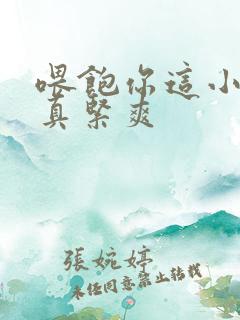 喂飽你這小
真緊爽
張婉婷
未经同意禁止转载